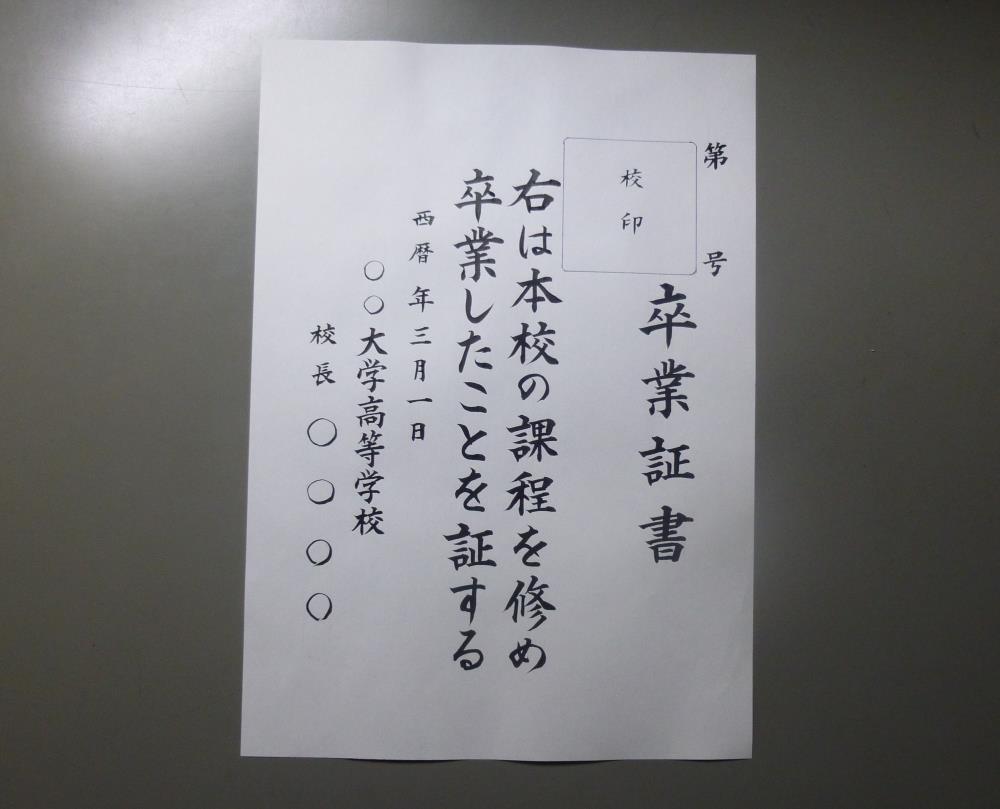 第 号
校印
卒業証書
右は本校の課程を修め
卒業したことを証する
西暦 年三月一日
○○大学高等学校
校長 ○○○○